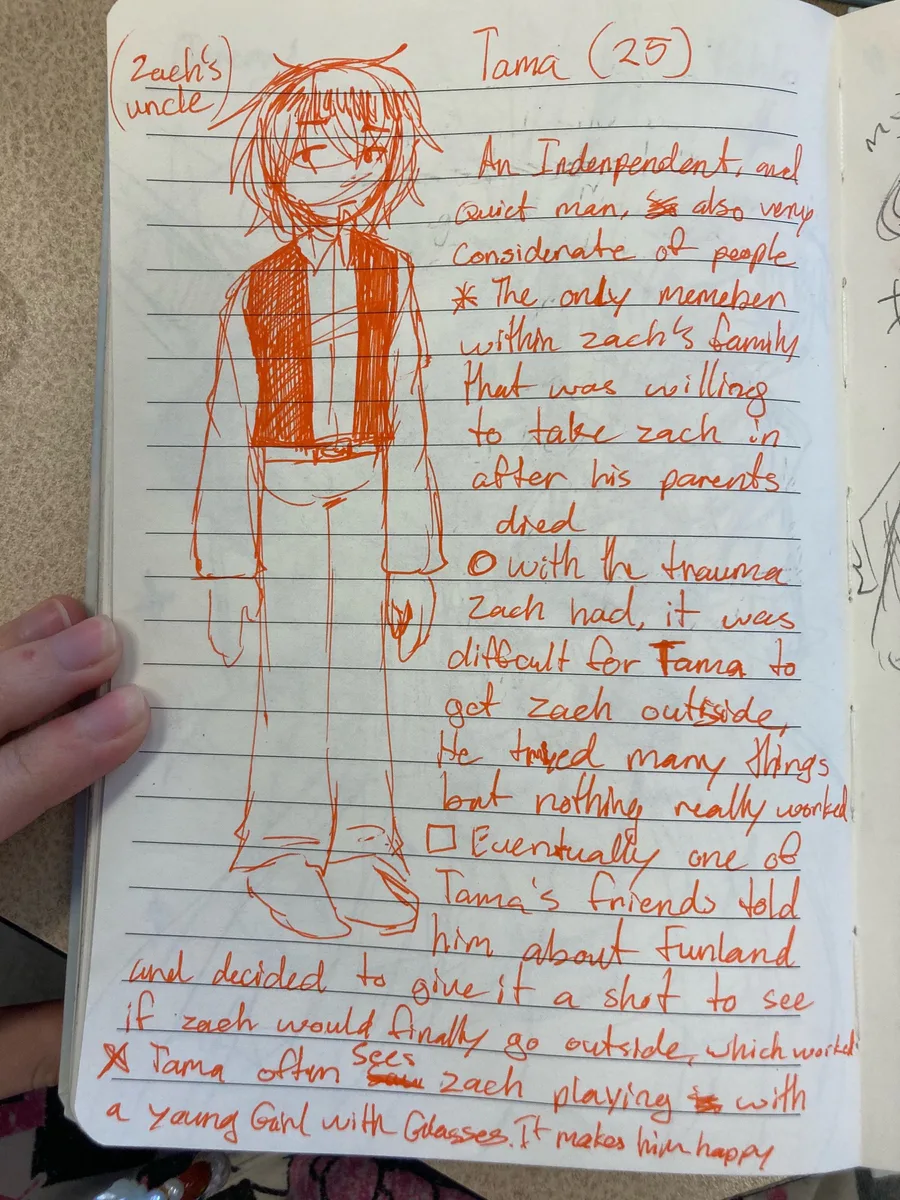 (Zach's uncle)
Tama (25)
An Indenpendent, and
Quiet man, also very
considerate of people
* The only memeber
within zach's family
that was willing
to take zach in
after his parents
died
O with the trauma
Zach had, it was
difficult for Tama to
get zach outside,
He tryed many things
but nothing really worked
□ Eventually one of
Tama's friends told
him about Funland
and decided to give it a shot to see
if zach would finally go outside, which worked
☆ Tama often sees zach playing with
a young Girl with Glasses. It makes him happy